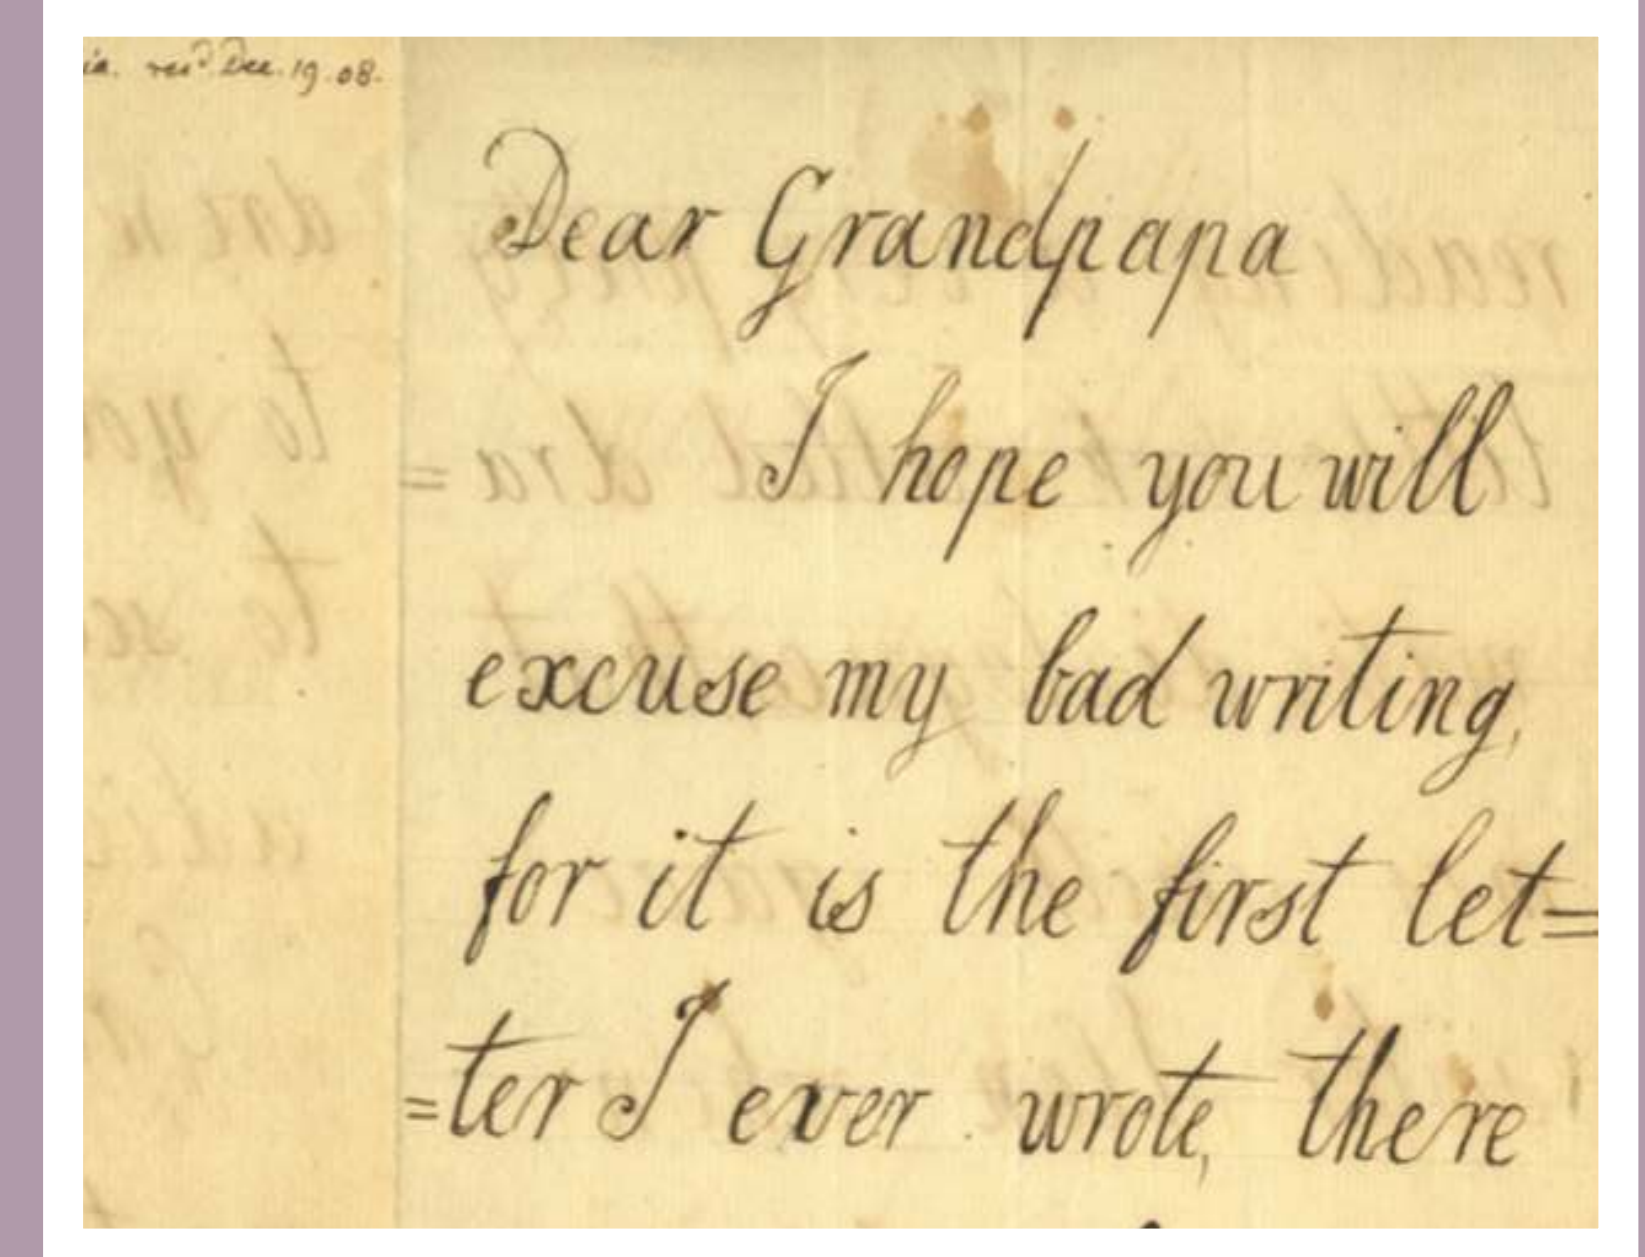 ia. recd Dec. 19. 08.
Dear Grandpapa
I hope you will
excuse my bad writing,
for it is the first let=
=ter I ever wrote, there